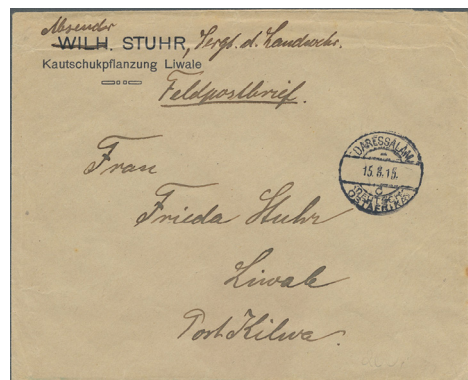 Absender
WILH. STUHR, Sergt. d. Landwehr.
Kautschukpflanzung Liwale
Feldpostbrief.
DARESSALAM
15.8.15.
DEUTSCH-
OSTAFRIKA
Frau
Frieda Stuhr
Liwale
Post Kilwa.